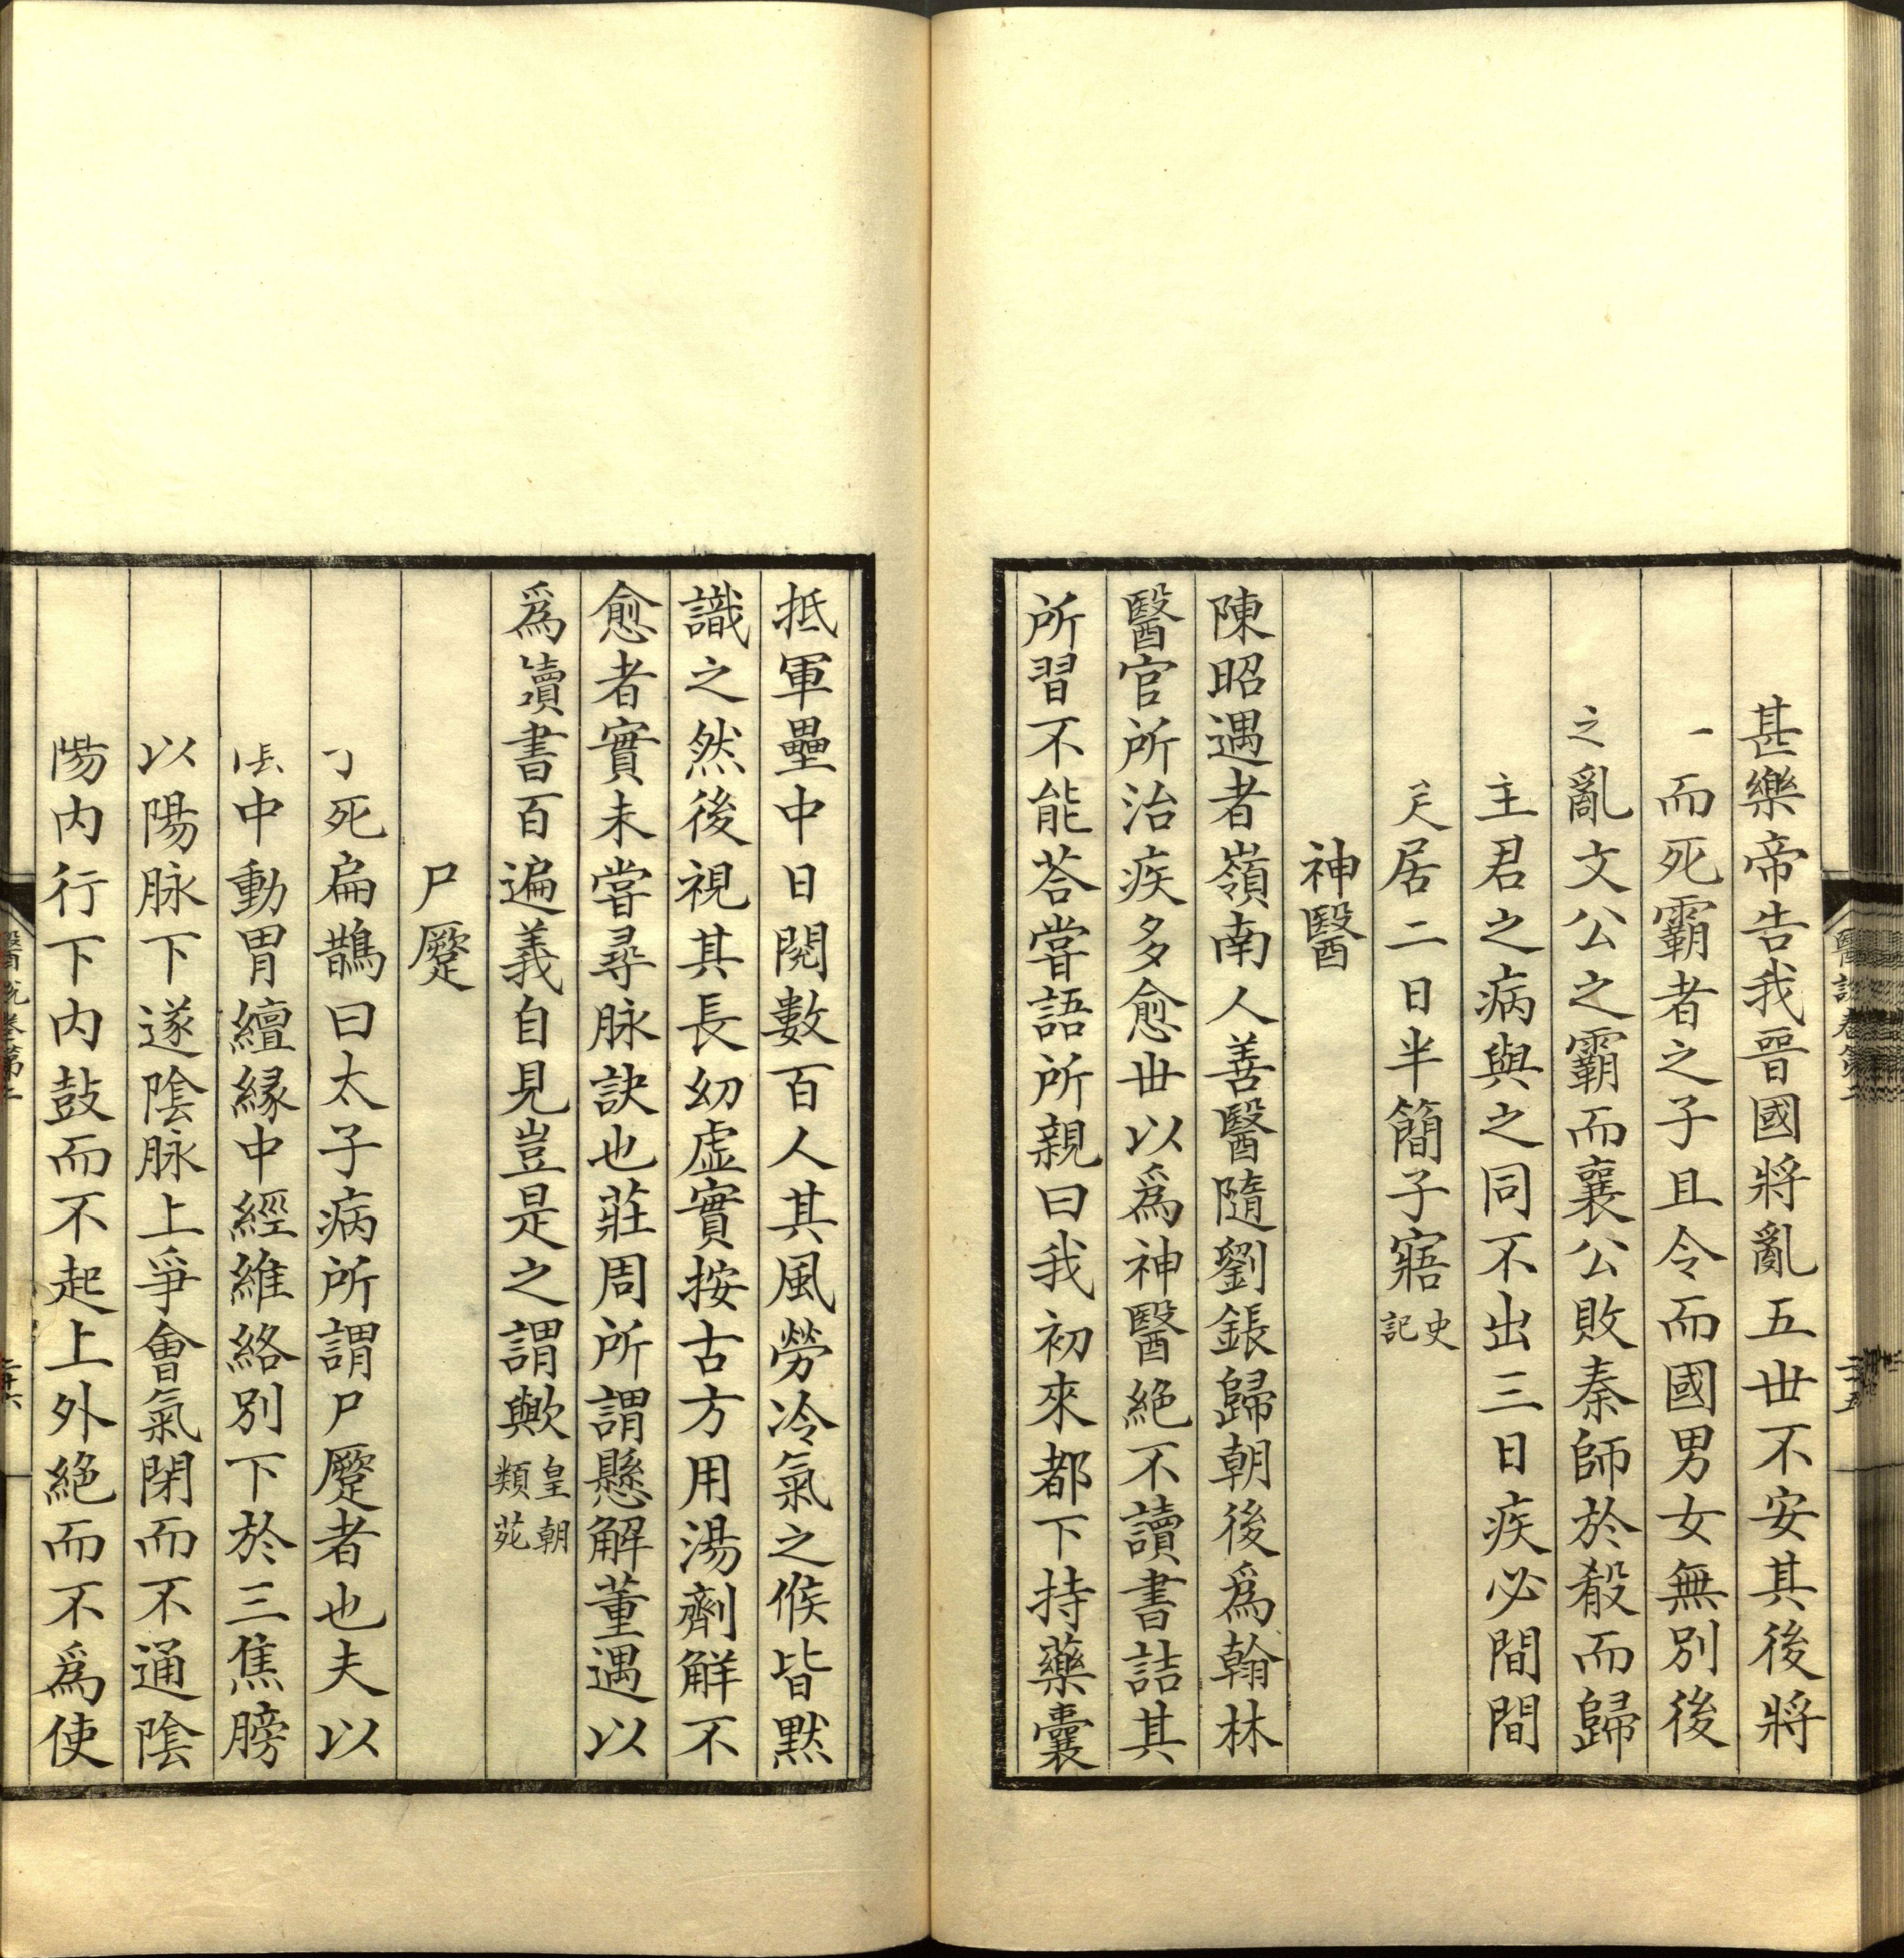 甚樂帝告我晉國將亂五世不安其後將
而死霸者之子且令而國男女無別後
之亂文公之霸而襄公敗秦師於殽而歸
主君之病與之同不出三日疾必間間
居二日半簡子寤史記
神醫
陳昭遇者嶺南人善醫隨劉鋹歸朝後爲翰林
醫官所治疾多愈世以爲神醫絕不讀書詰其
所習不能荅嘗語所親曰我初來都下持藥囊
抵軍壘中日閱數百人其風勞冷氣之候皆默
識之然後視其長幼虛實按古方用湯劑鮮不
愈者實未嘗尋脉訣也莊周所謂懸解董遇以
爲讀書百遍義自見豈是之謂歟皇朝類苑
尸蹷
死扁鵲曰太子病所謂尸蹷者也夫以
中動胃繵緣中經維絡別下於三焦膀
以陽脉下遂陰脉上爭會氣閉而不通陰
陽內行下內鼓而不起上外絕而不爲使